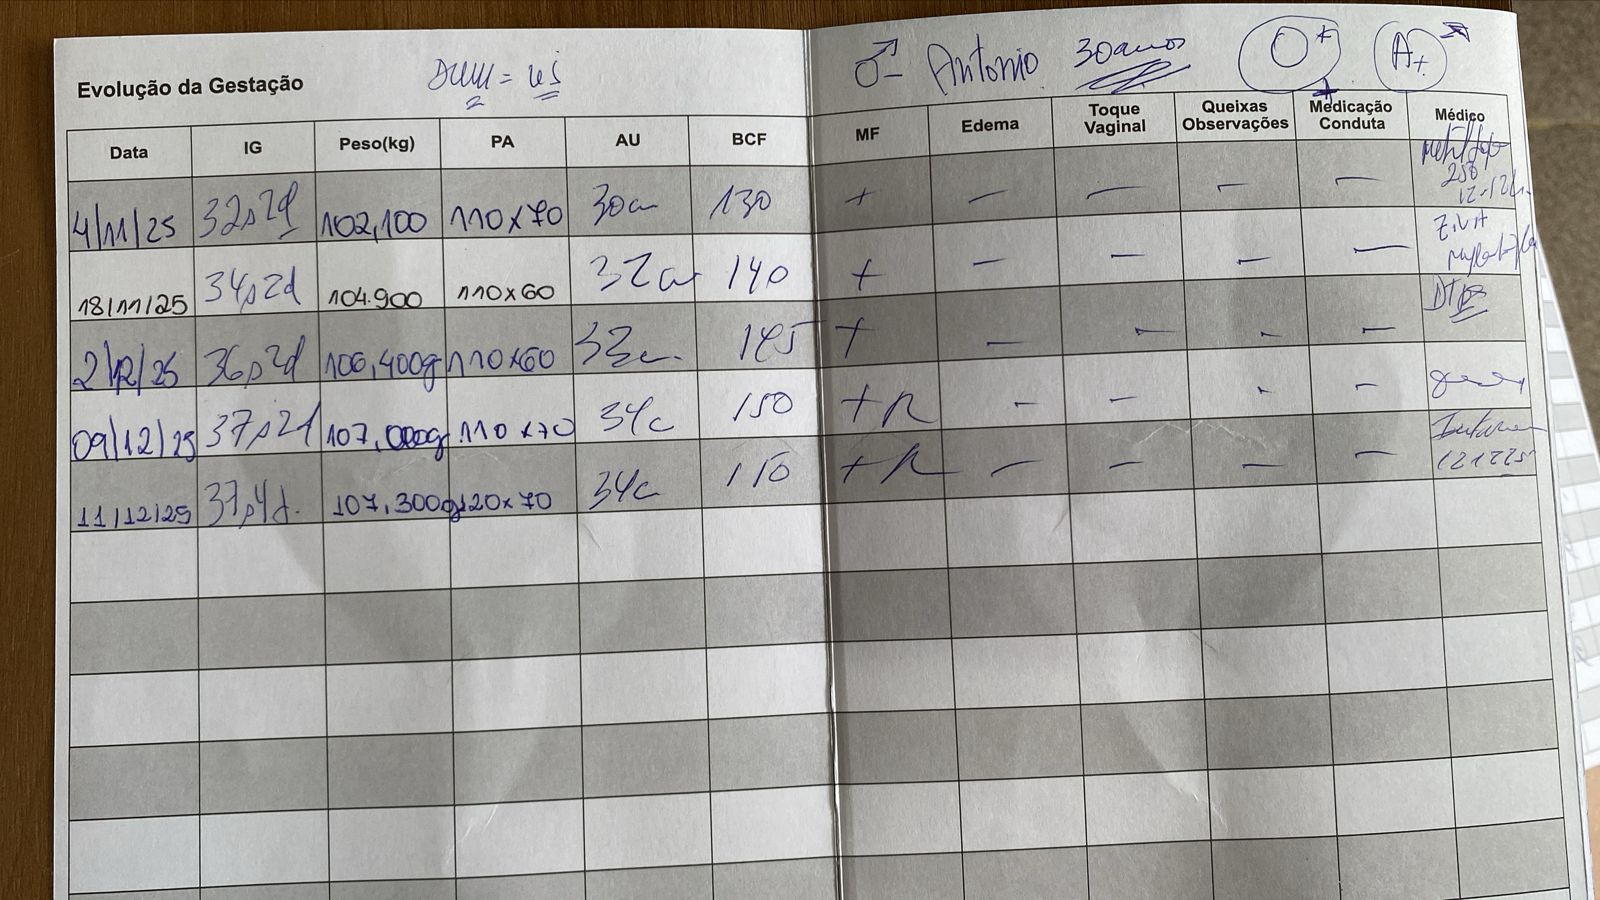 Evolução da Gestação DUM = US
♂ - Antonio 30 anos O+ A+
Data IG Peso(kg) PA AU BCF MF Edema Toque Vaginal Queixas Observações Medicação Conduta Médico
4/11/25 32s2d 102,100 110x70 30cm 130 + — — — —
18/11/25 34s2d 104.900 110x60 32cm 140 + — — — —
2/12/25 36s2d 106,400g 110x60 33cm 145 + — — — —
09/12/25 37s2d 107,000g 110x70 34c 150 + R — — — —
11/12/25 37s4d. 107,300g 120x70 34c 150 + R — — — —